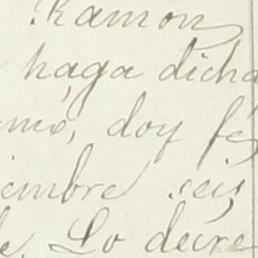 Ramon
haga dicha
mó, doy fé
iembre seis
Lo decre